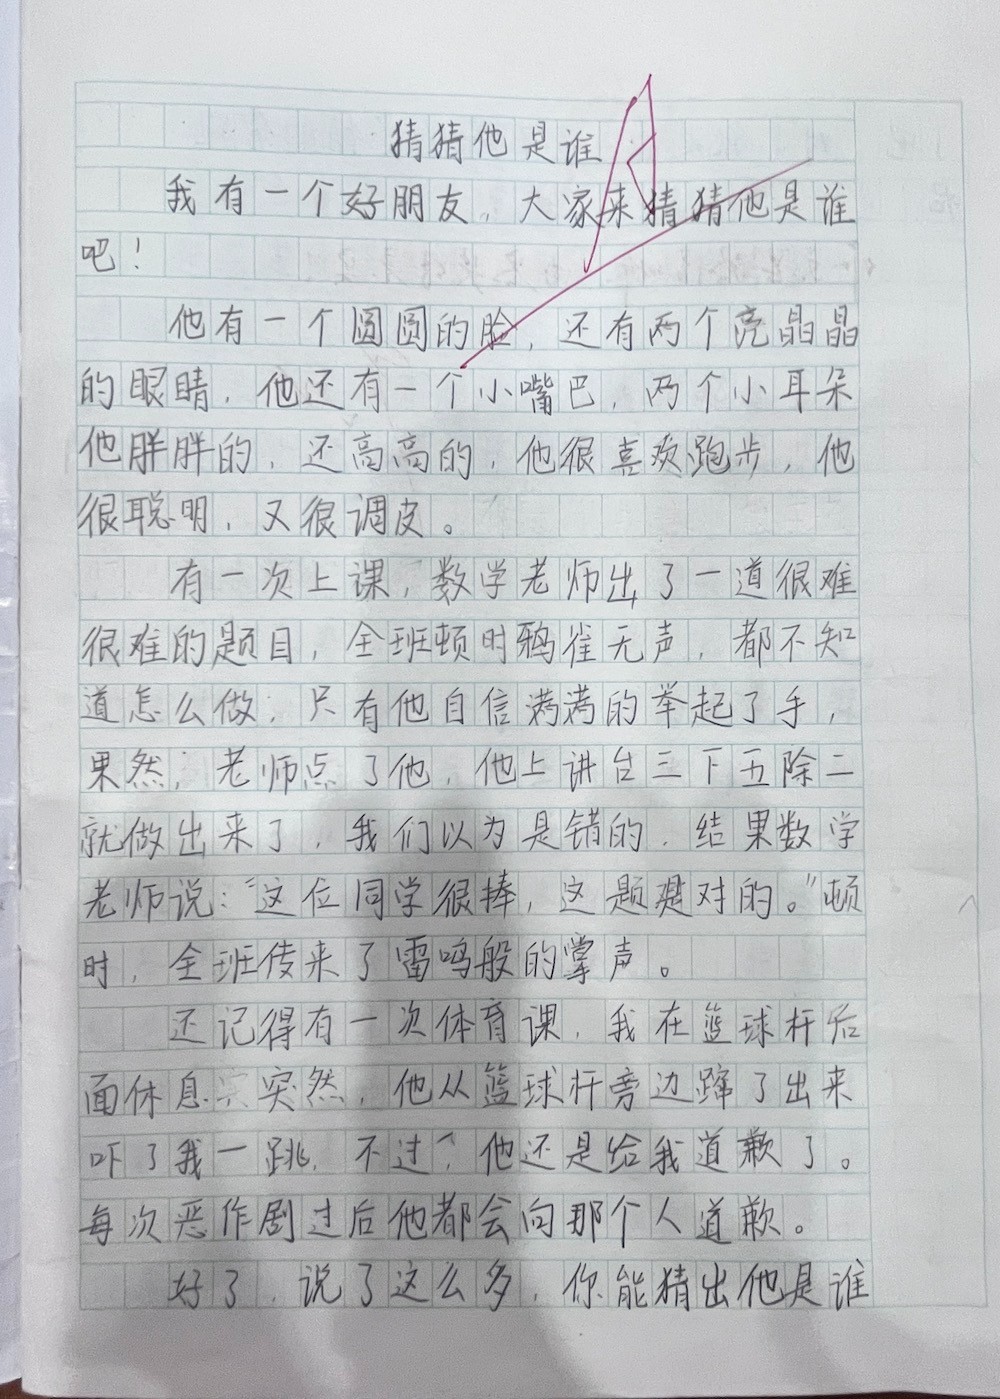 猜猜他是谁
我有一个好朋友，大家来猜猜他是谁
吧！
他有一个圆圆的脸，还有两个亮晶晶
的眼睛，他还有一个小嘴巴，两个小耳朵
他胖胖的，还高高的，他很喜欢跑步，他
很聪明，又很调皮。
有一次上课，数学老师出了一道很难
很难的题目，全班顿时鸦雀无声，都不知
道怎么做，只有他自信满满的举起了手，
果然，老师点了他，他上讲台三下五除二
就做出来了，我们以为是错的，结果数学
老师说：“这位同学很捧，这题是对的。”顿
时，全班传来了雷鸣般的掌声。
还记得有一次体育课，我在篮球杆后
面休息突然，他从篮球杆旁边蹿了出来
吓了我一跳，不过，他还是给我道歉了。
每次恶作剧过后他都会向那个人道歉。
好了，说了这么多，你能猜出他是谁